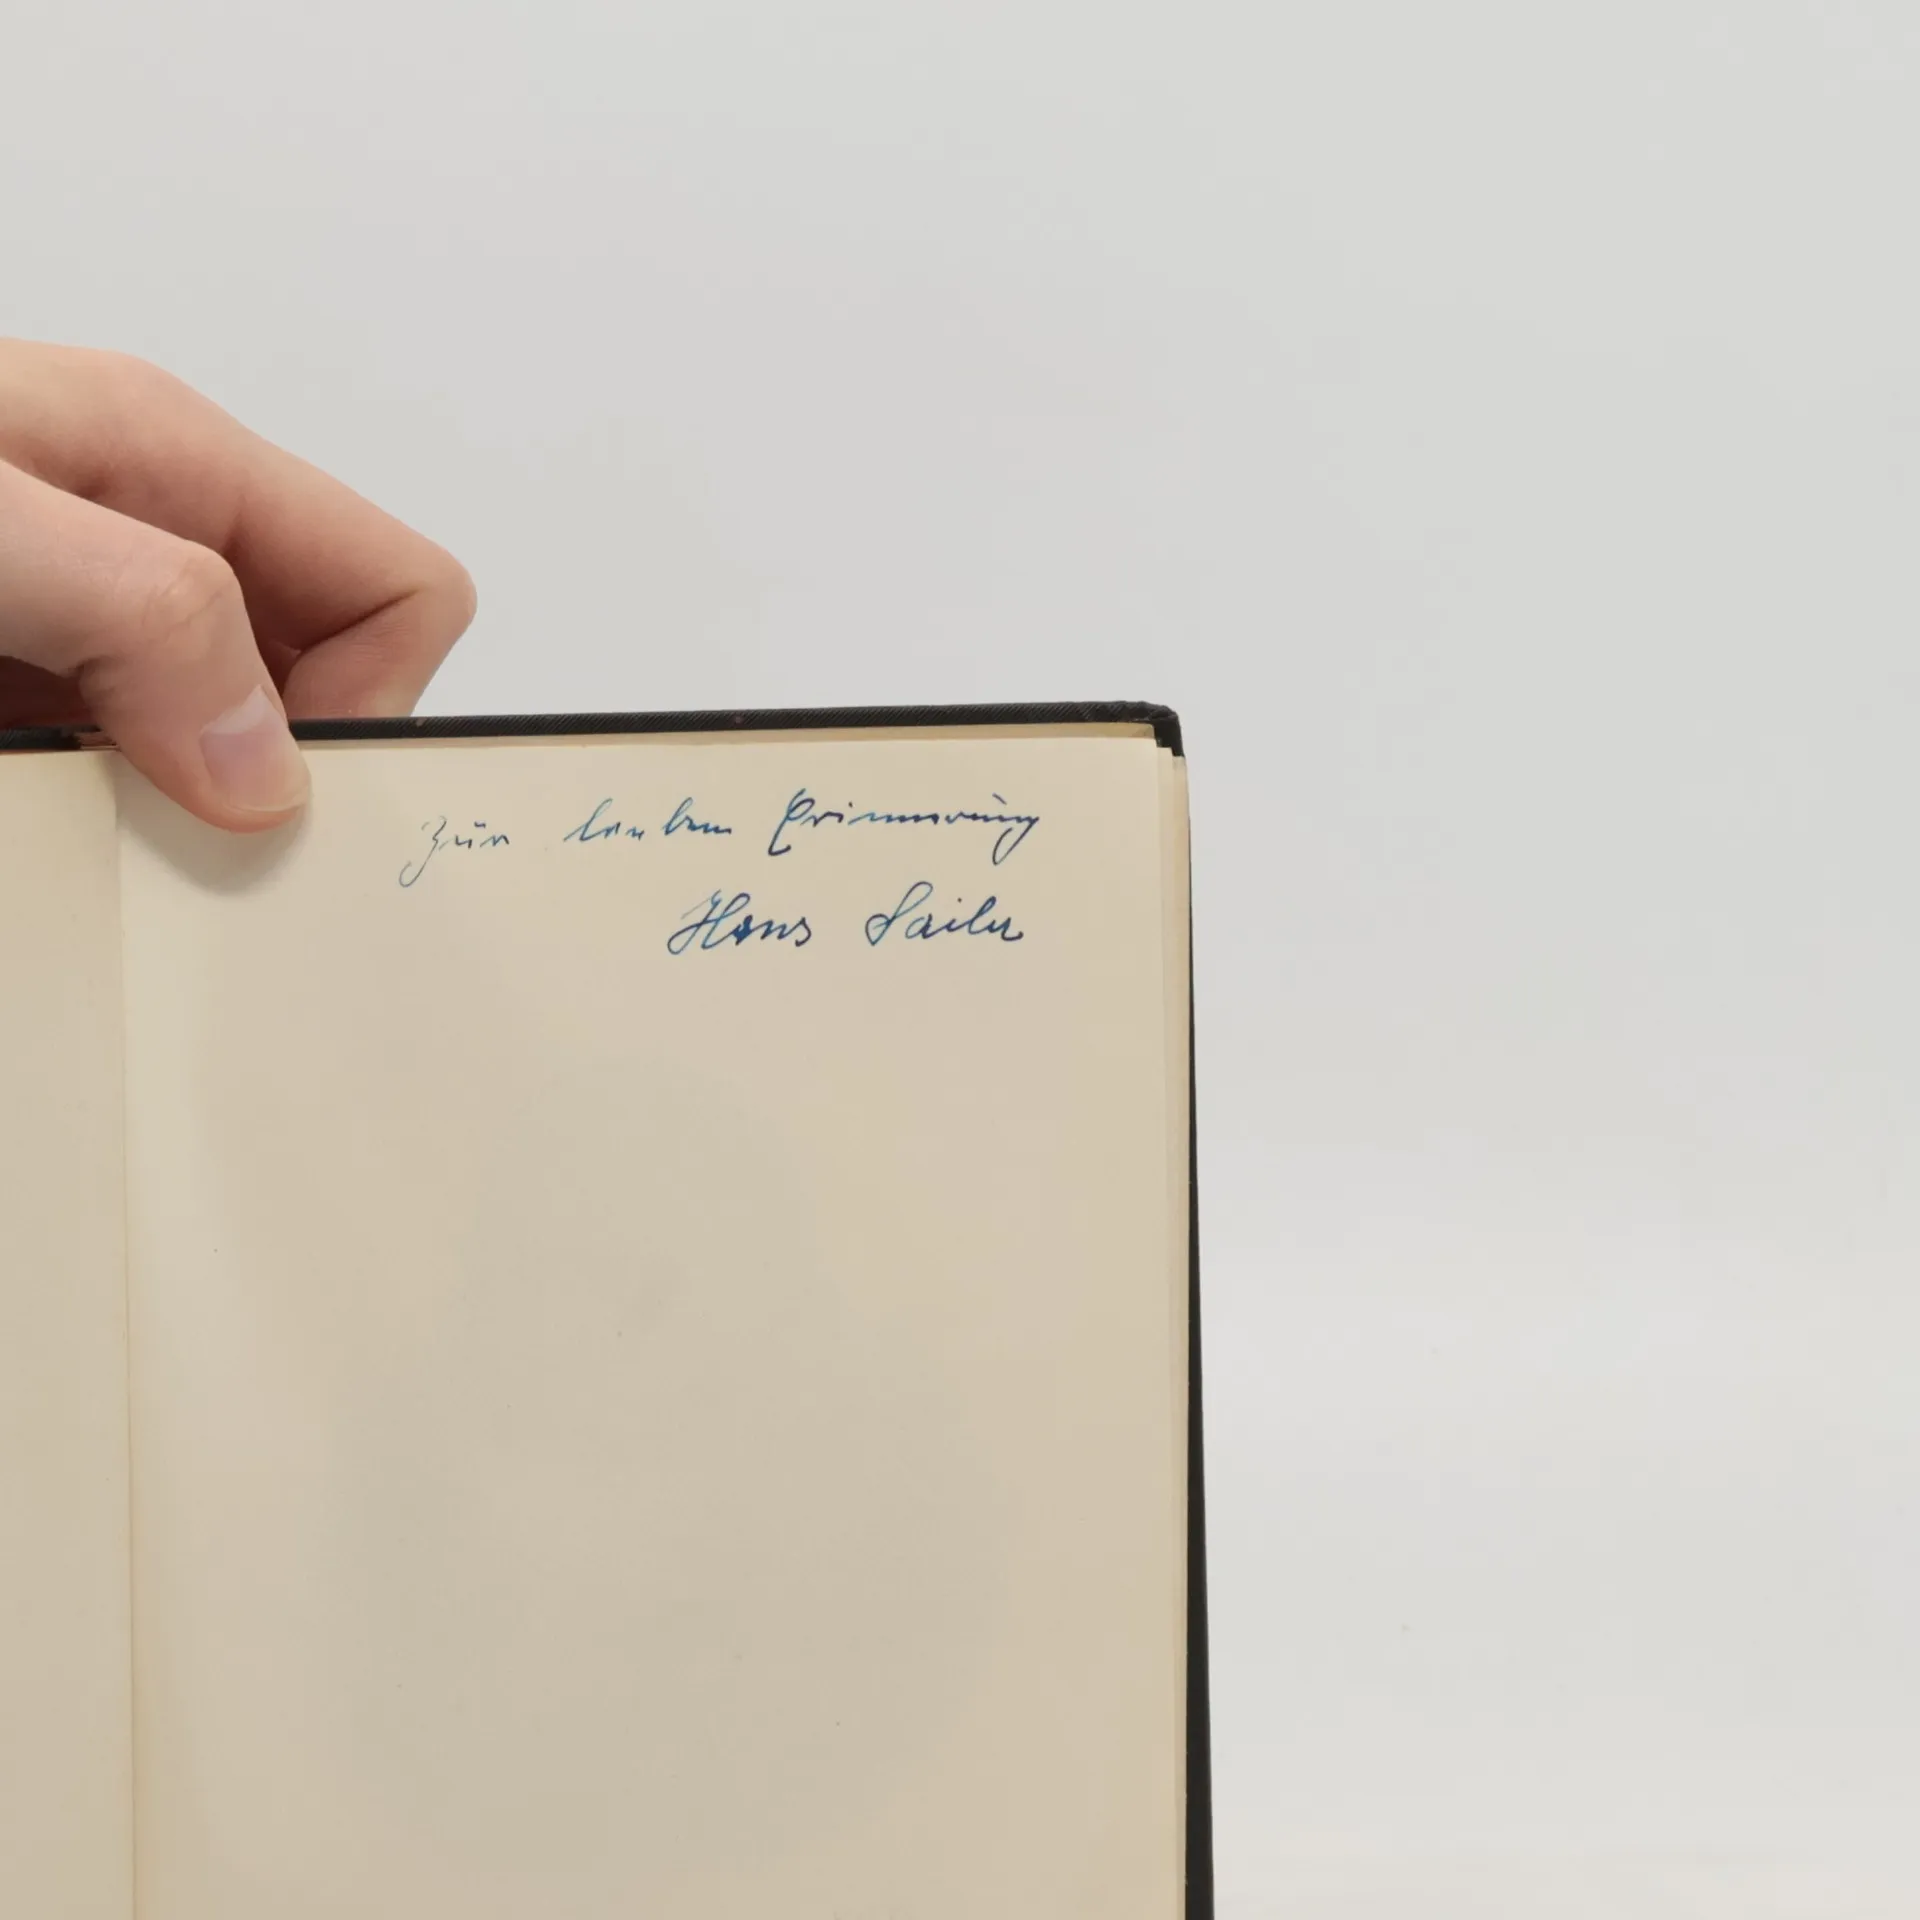 Zur lieben Erinnerung
Hans Sailer